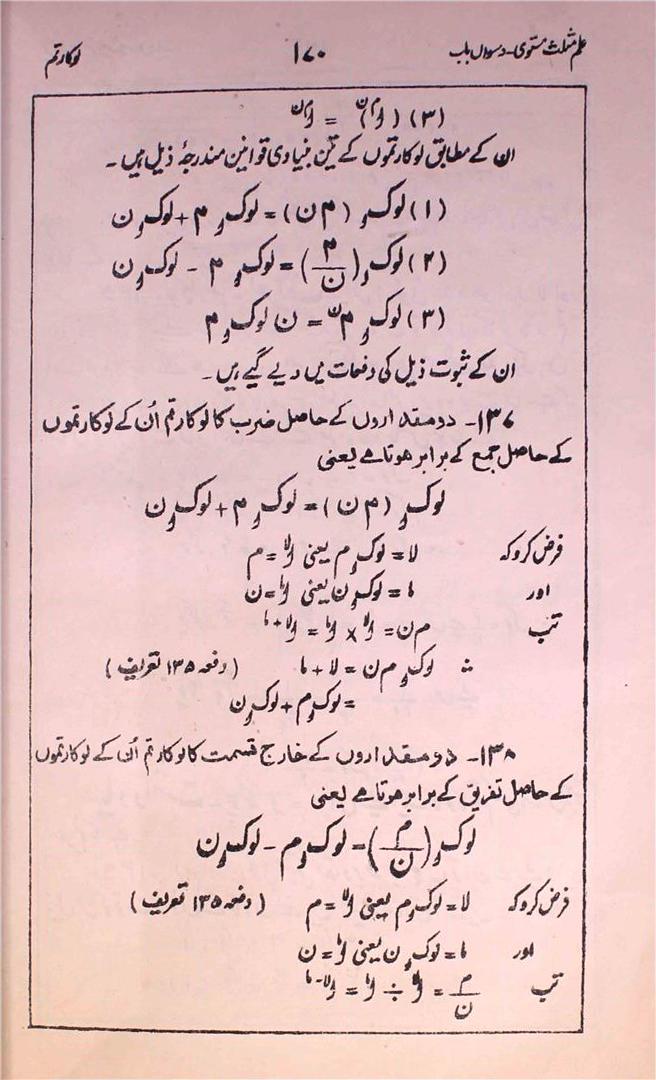 علم مثلث مستوی۔ دسواں باب ۱۷۰ لوکارتم
(۳) (اوᵐ)ⁿ = اوᵐⁿ
ان کے مطابق لوکارتموں کے تین بنیادی قوانین مندرجۂ ذیل ہیں۔
(۱) لوک او (م ن) = لوک او م + لوک او ن
(۲) لوک او (م/ن) = لوک او م - لوک او ن
(۳) لوک او م^ن = ن لوک او م
ان کے ثبوت ذیل کی دفعات میں دیے گیے ہیں۔
۱۳۷۔ دو مقداروں کے حاصل ضرب کا لوکارتم اُن کے لوکارتموں
کے حاصل جمع کے برابر ہوتا ہے یعنی
لوک او (م ن) = لوک او م + لوک او ن
فرض کرو کہ لا = لوک او م یعنی او^لا = م
اور ما = لوک او ن یعنی او^ما = ن
تب م ن = او^لا × او^ما = او^(لا + ما)
∴ لوک او م ن = لا + ما (دفعہ ۱۳۵ تعریف)
= لوک او م + لوک او ن
۱۳۸۔ دو مقداروں کے خارج قسمت کا لوکارتم اُن کے لوکارتموں
کے حاصل تفریق کے برابر ہوتا ہے یعنی
لوک او (م/ن) = لوک او م - لوک او ن
فرض کرو کہ لا = لوک او م یعنی او^لا = م (دفعہ ۱۳۵ تعریف)
اور ما = لوک او ن یعنی او^ما = ن
تب م/ن = او^لا ÷ او^ما = او^(لا - ما)